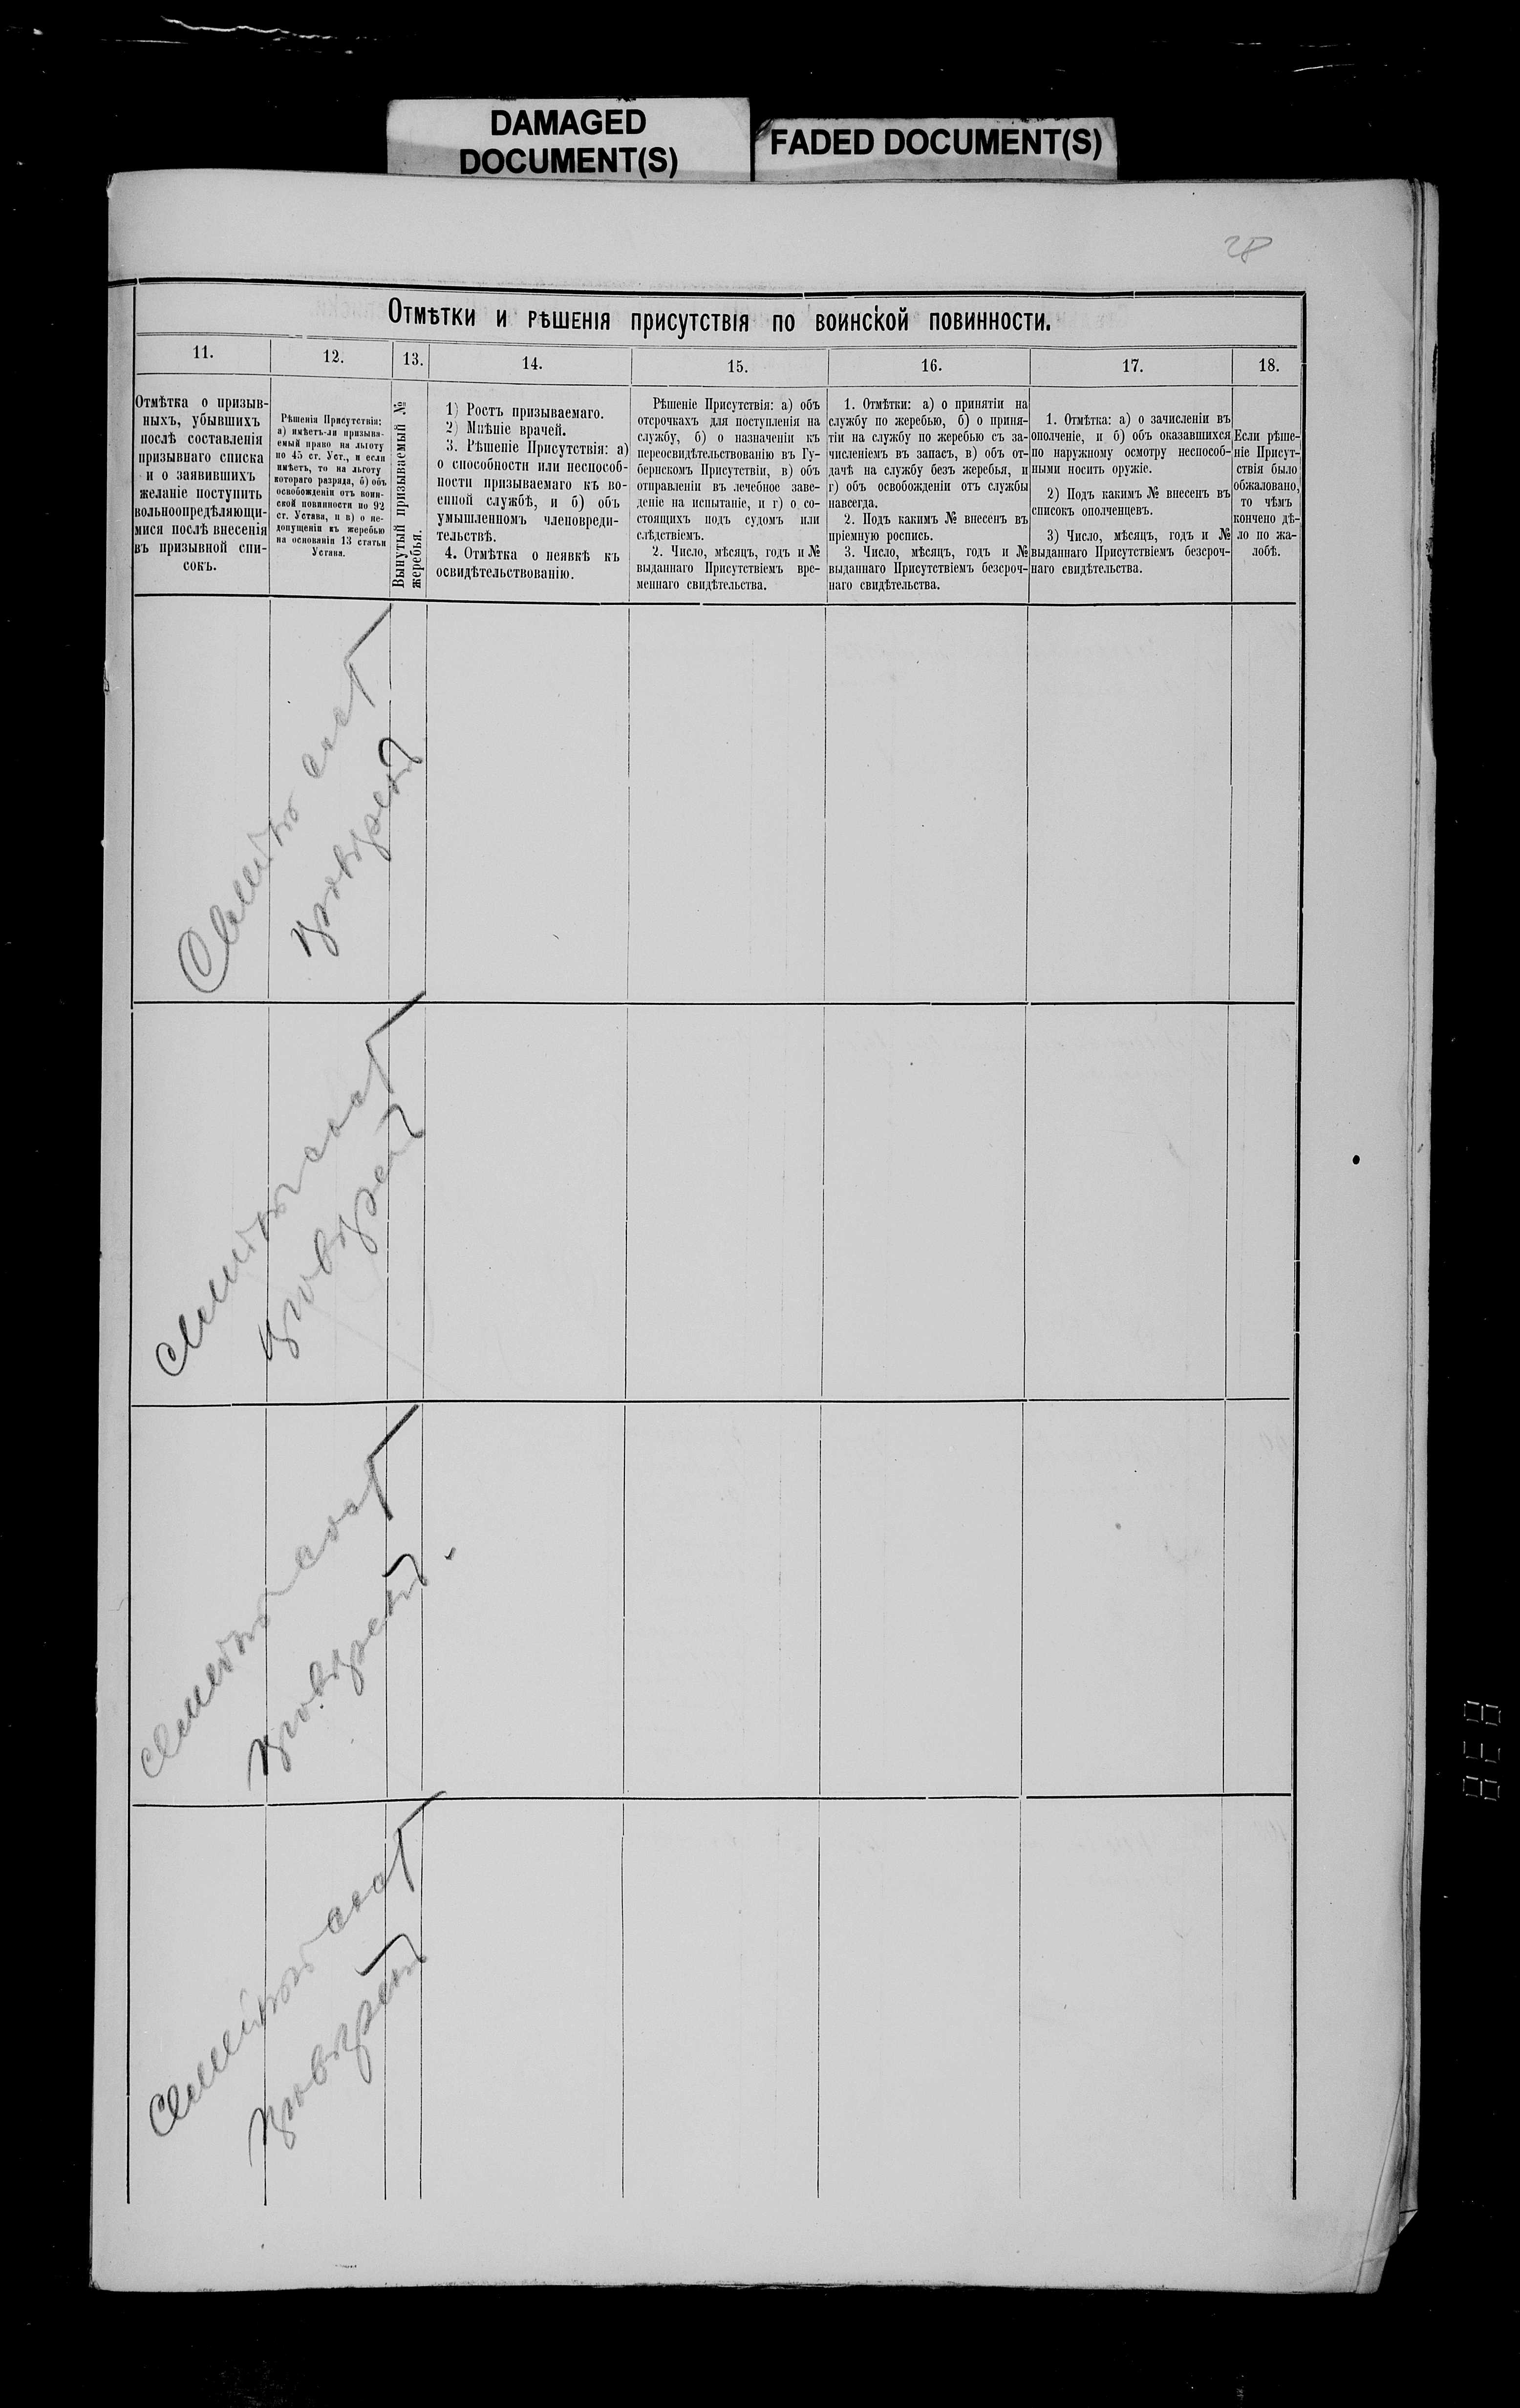 DAMAGED
DOCUMENT(S)
FADED DOCUMENT(S)
28
Отмѣтки и рѣшенія присутствія по воинской повинности.
11.
12.
13.
14.
15.
16.
17.
18.
Отмѣтка о призыв-
ныхъ, убывшихъ
послѣ составленія
призывнаго списка
и о заявившихъ
желаніе поступить
вольноопредѣляющи-
мися послѣ внесенія
въ призывной спи-
сокъ.
Рѣшенія Присутствія:
а) имѣетъ-ли призыва-
емый право на льготу
по 45 ст. Уст., и если
имѣетъ, то на льготу
котораго разряда, б) объ
освобожденіи отъ воин-
ской повинности по 92
ст. Устава, и в) о не-
допущеніи къ жеребью
на основаніи 13 статьи
Устава.
Вынутый призываемый №
жеребья.
1) Ростъ призываемаго.
2) Мнѣніе врачей.
3. Рѣшеніе Присутствія: а)
о способности или неспособ-
ности призываемаго къ во-
енной службѣ, и б) объ
умышленномъ членовреди-
тельствѣ.
4. Отмѣтка о неявкѣ къ
освидѣтельствованію.
Рѣшеніе Присутствія: а) объ
отсрочкахъ для поступленія на
службу, б) о назначеніи къ
переосвидѣтельствованію въ Гу-
бернскомъ Присутствіи, в) объ
отправленіи въ лечебное заве-
деніе на испытаніе, и г) о со-
стоящихъ подъ судомъ или
слѣдствіемъ.
2. Число, мѣсяцъ, годъ и №
выданнаго Присутствіемъ вре-
меннаго свидѣтельства.
1. Отмѣтки: а) о принятіи на
службу по жеребью, б) о приня-
тіи на службу по жеребью съ за-
численіемъ въ запасъ, в) объ от-
дачѣ на службу безъ жеребья, и
г) объ освобожденіи отъ службы
навсегда.
2. Подъ какимъ № внесенъ въ
пріемную роспись.
3. Число, мѣсяцъ, годъ и №
выданнаго Присутствіемъ безсроч-
наго свидѣтельства.
1. Отмѣтка: а) о зачисленіи въ
ополченіе, и б) объ оказавшихся
по наружному осмотру неспособ-
ными носить оружіе.
2) Подъ какимъ № внесенъ въ
списокъ ополченцевъ.
3) Число, мѣсяцъ, годъ и №
выданнаго Присутствіемъ безсроч-
наго свидѣтельства.
Если рѣше-
ніе Присут-
ствія было
обжаловано,
то чѣмъ
кончено дѣ-
ло по жа-
лобѣ.
838